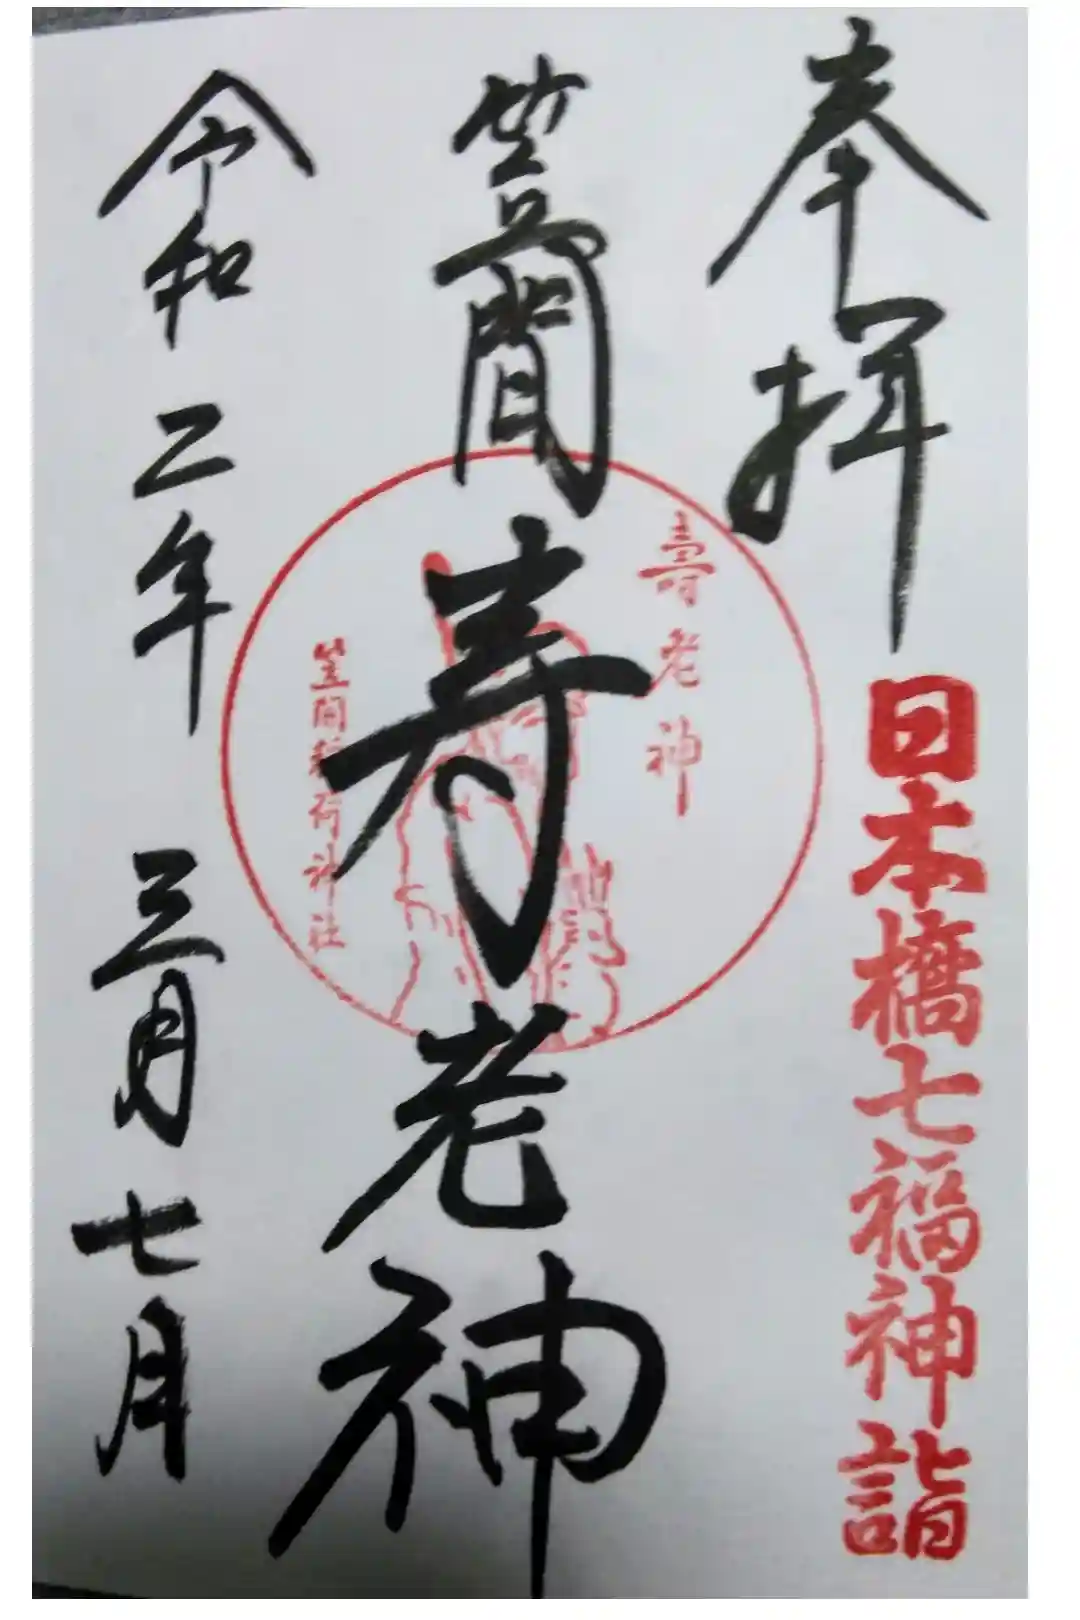 奉拝
日本橋七福神詣
笠間寿老神
壽老神
笠間稲荷神社
令和二年三月七月